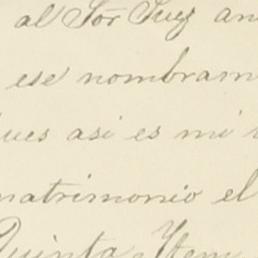 al Sor Juez an
ese nombram
ues asi es mi
matrimonio el
Quinta. Ytem